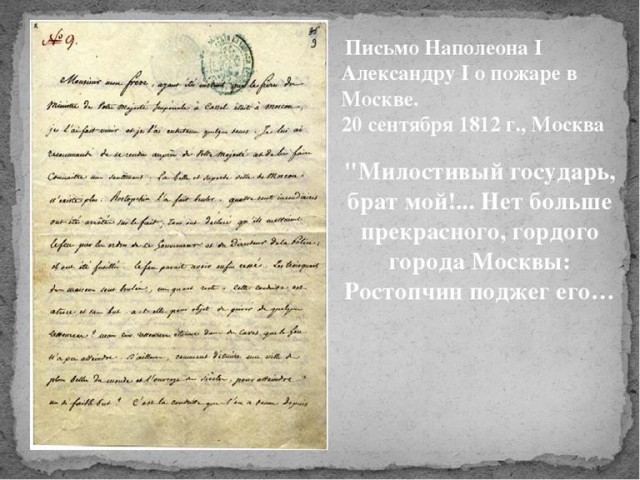 № 9.
3
Monsieur mon frère, ayant été instruit que le frère du
Ministre de Votre Majesté Impériale à Cassel était à Moscou,
je l'ai fait venir et je l'ai entretenu quelque tems. Je lui ai
recommandé de se rendre auprès de Votre Majesté et de lui faire
connaître mes sentimens. La belle et superbe ville de Moscou
n'existe plus: Rostopchin l'a fait bruler. quatre cent incendiaires
ont été arrêtés sur le fait; tous ont déclaré qu'ils mettaient
le feu par les ordres de ce Gouverneur et du Directeur de la Police;
ils ont été fusillés. le feu parait avoir enfin cessé. Les trois quarts
des maisons sont brulées, un quart reste. Cette conduite est
atroce et sans but. a-t-elle pour objet de priver de quelques
ressources? mais ces ressources étaient dans des caves que le feu
n'a pu atteindre. D'ailleurs, comment détruire une ville des
plus belles du monde et l'ouvrage des siècles, pour atteindre
un si faible but? C'est la conduite que l'on a tenue depuis
Письмо Наполеона I
Александру I о пожаре в
Москве.
20 сентября 1812 г., Москва
"Милостивый государь,
брат мой!... Нет больше
прекрасного, гордого
города Москвы:
Ростопчин поджег его…